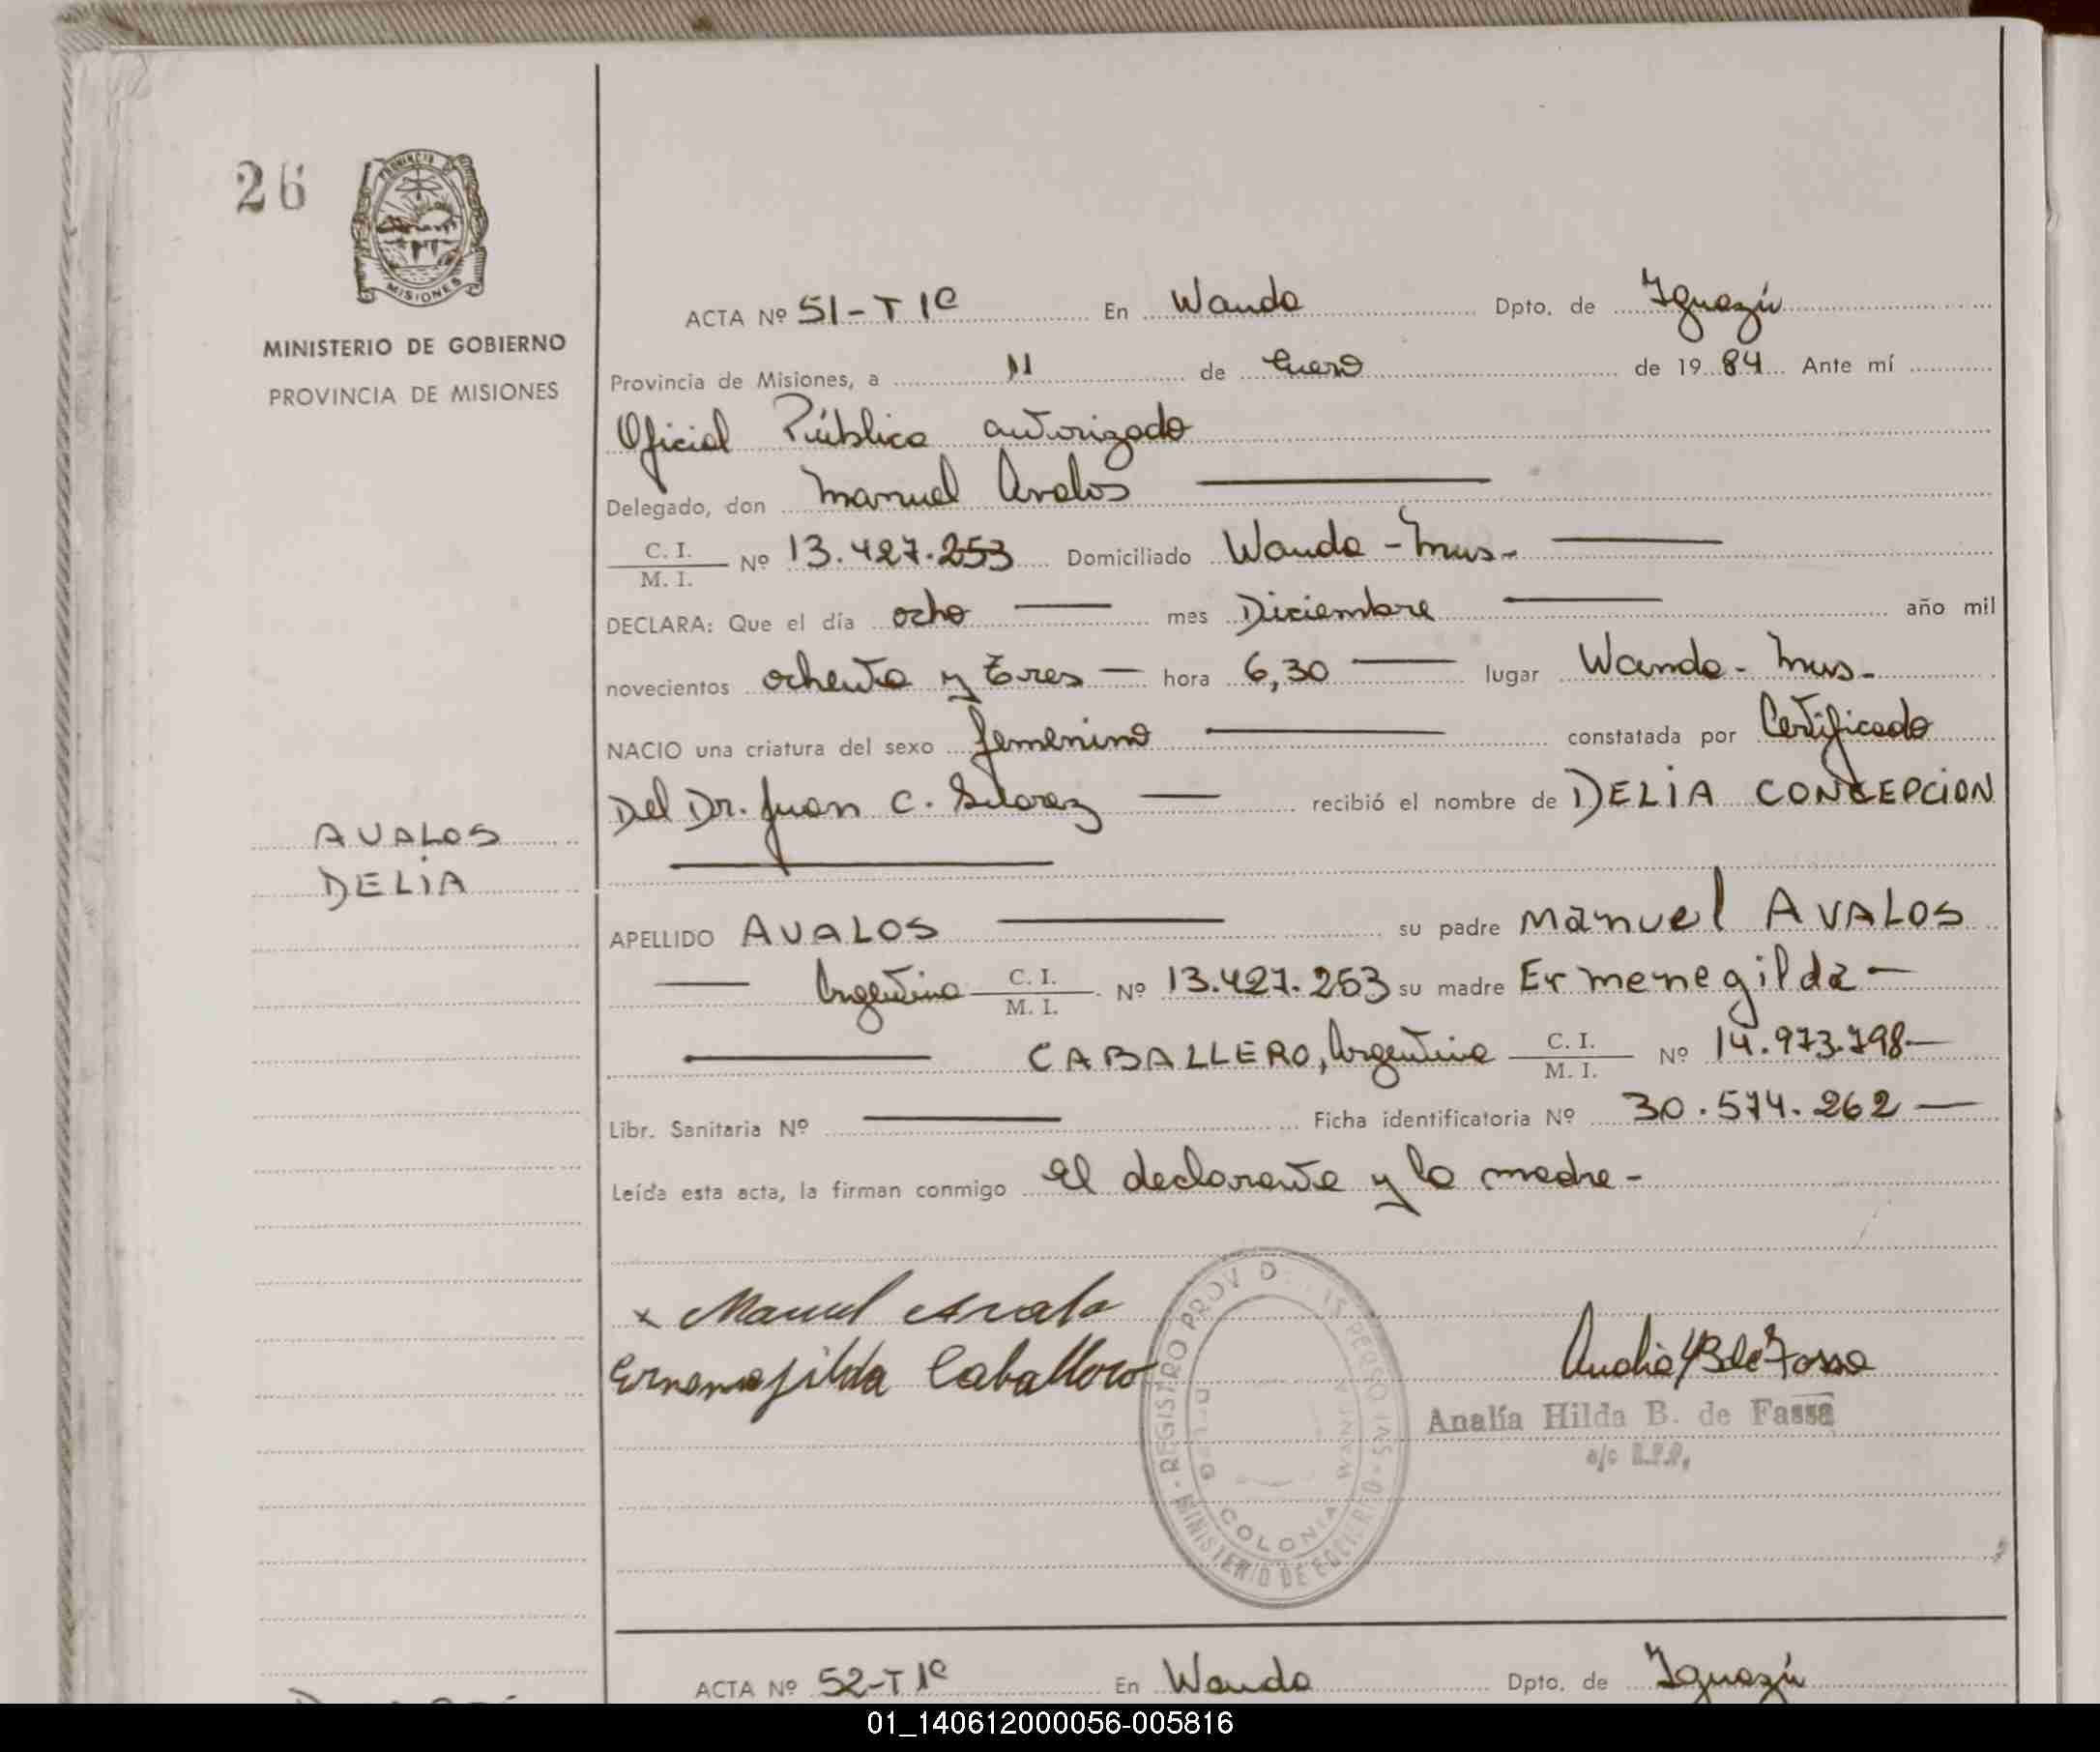 26
PROVINCIA DE
MISIONES
MINISTERIO DE GOBIERNO
PROVINCIA DE MISIONES
ACTA Nº 51-T 1º En Wanda Dpto. de Iguazú
Provincia de Misiones, a 11 de Enero de 1984 Ante mí
Oficial Público autorizado
Delegado, don Manuel Avalos
C. I. / M. I. Nº 13.427.253 Domiciliado Wanda - Mns.
DECLARA: Que el día ocho mes Diciembre año mil
novecientos ochenta y tres hora 6,30 lugar Wanda - Mns.
NACIO una criatura del sexo femenino constatada por Certificado
Del Dr. Juan C. recibió el nombre de DELIA CONCEPCION
AVALOS
DELIA
APELLIDO AVALOS su padre Manuel AVALOS
Argentino C. I. / M. I. Nº 13.427.253 su madre Ermenegilda
CABALLERO, Argentina C. I. / M. I. Nº 14.973.798
Libr. Sanitaria Nº Ficha identificatoria Nº 30.574.262
Leída esta acta, la firman conmigo el declarante y la madre
x Manuel Avalo
Ermenegilda Caballero
Analía Hilda B. de Fassa
REGISTRO PROV D
COLONIA WANDA
MINISTERIO DE
ACTA Nº 52-T 1º En Wanda Dpto. de Iguazú
01_140612000056-005816